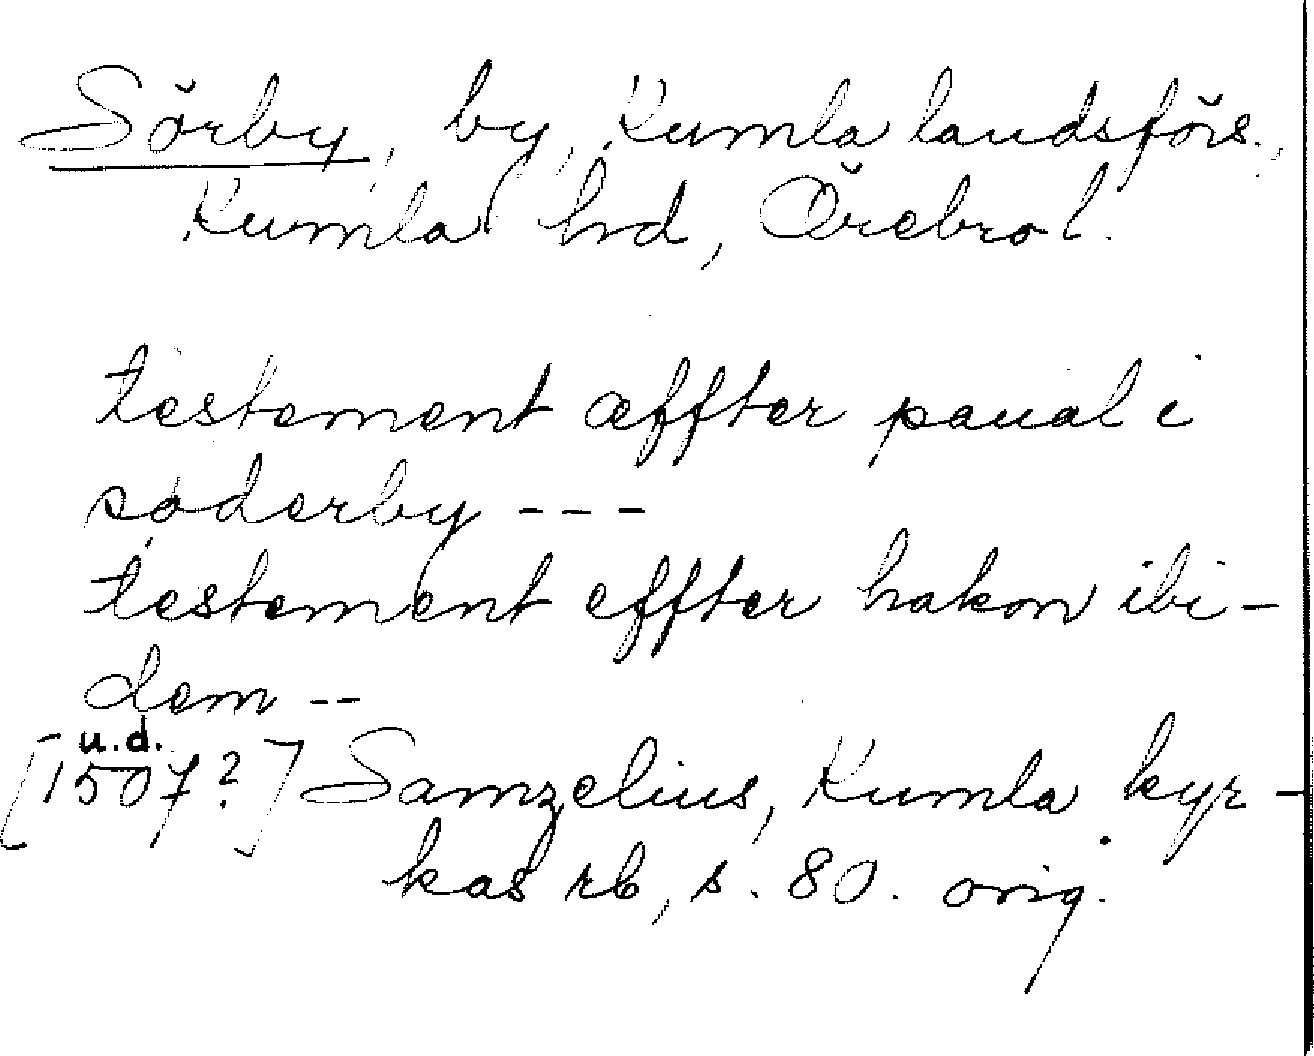 Sörby, by, Kumla landsförs.,
Kumla hd, Örebro l.
testement æffter paual i
søderby ---
testement effter hakon ibi-
dem --
u.d.
[1507?] Samzelius, Kumla kyr-
kas rb, s. 80. orig.